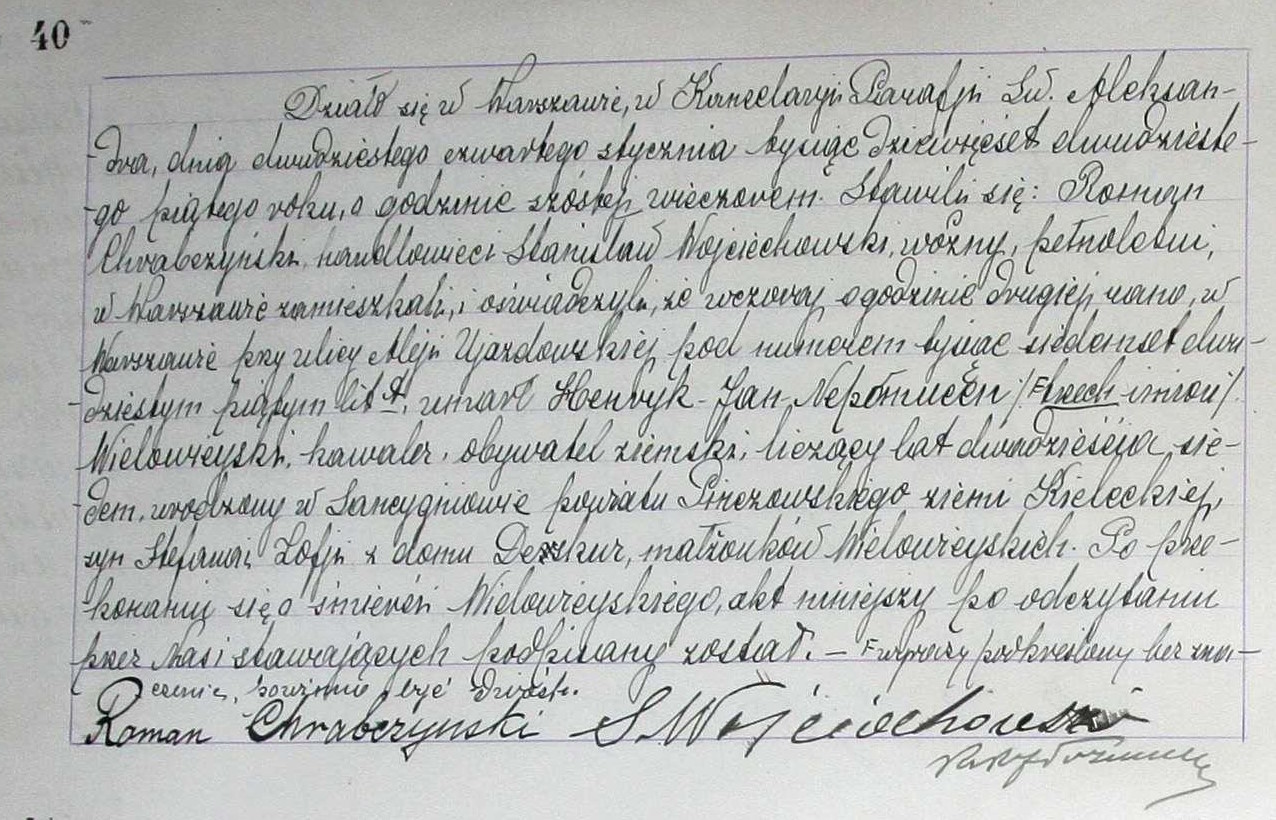 40
Działo się w Warszawie, w Kancelaryi Parafji Św. Aleksan-
dra, dnia dwudziestego czwartego stycznia tysiąc dziewięćset dwudzieste-
go piątego roku, o godzinie szóstej wieczorem. Stawili się: Roman
Chrabczyński, handlowiec i Stanisław Wojciechowski, woźny, pełnoletni,
w Warszawie zamieszkali, i oświadczyli, że wczoraj o godzinie drugiej rano, w
Warszawie przy ulicy Aleji Ujazdowskiej pod numerem tysiąc siedemset dwu-
dziestym piątym lit A, umarł Henryk-Jan Nepomucen /trzech imion/
Wielowieyski, kawaler, obywatel ziemski, liczący lat dwadzieścia sie-
dem, urodzony w Sancygniowie powiatu Pinczowskiego ziemi Kieleckiej,
syn Stefana i Zofji z domu Deszkur, małżonków Wielowieyskich. Po prze-
konaniu się o śmierci Wielowieyskiego, akt niniejszy po odczytaniu
przez Nas i stawających podpisany został. – wyraz podkreślony bez zna-
czenia, powinno być
Roman Chrabczynski S. Wojciechowski